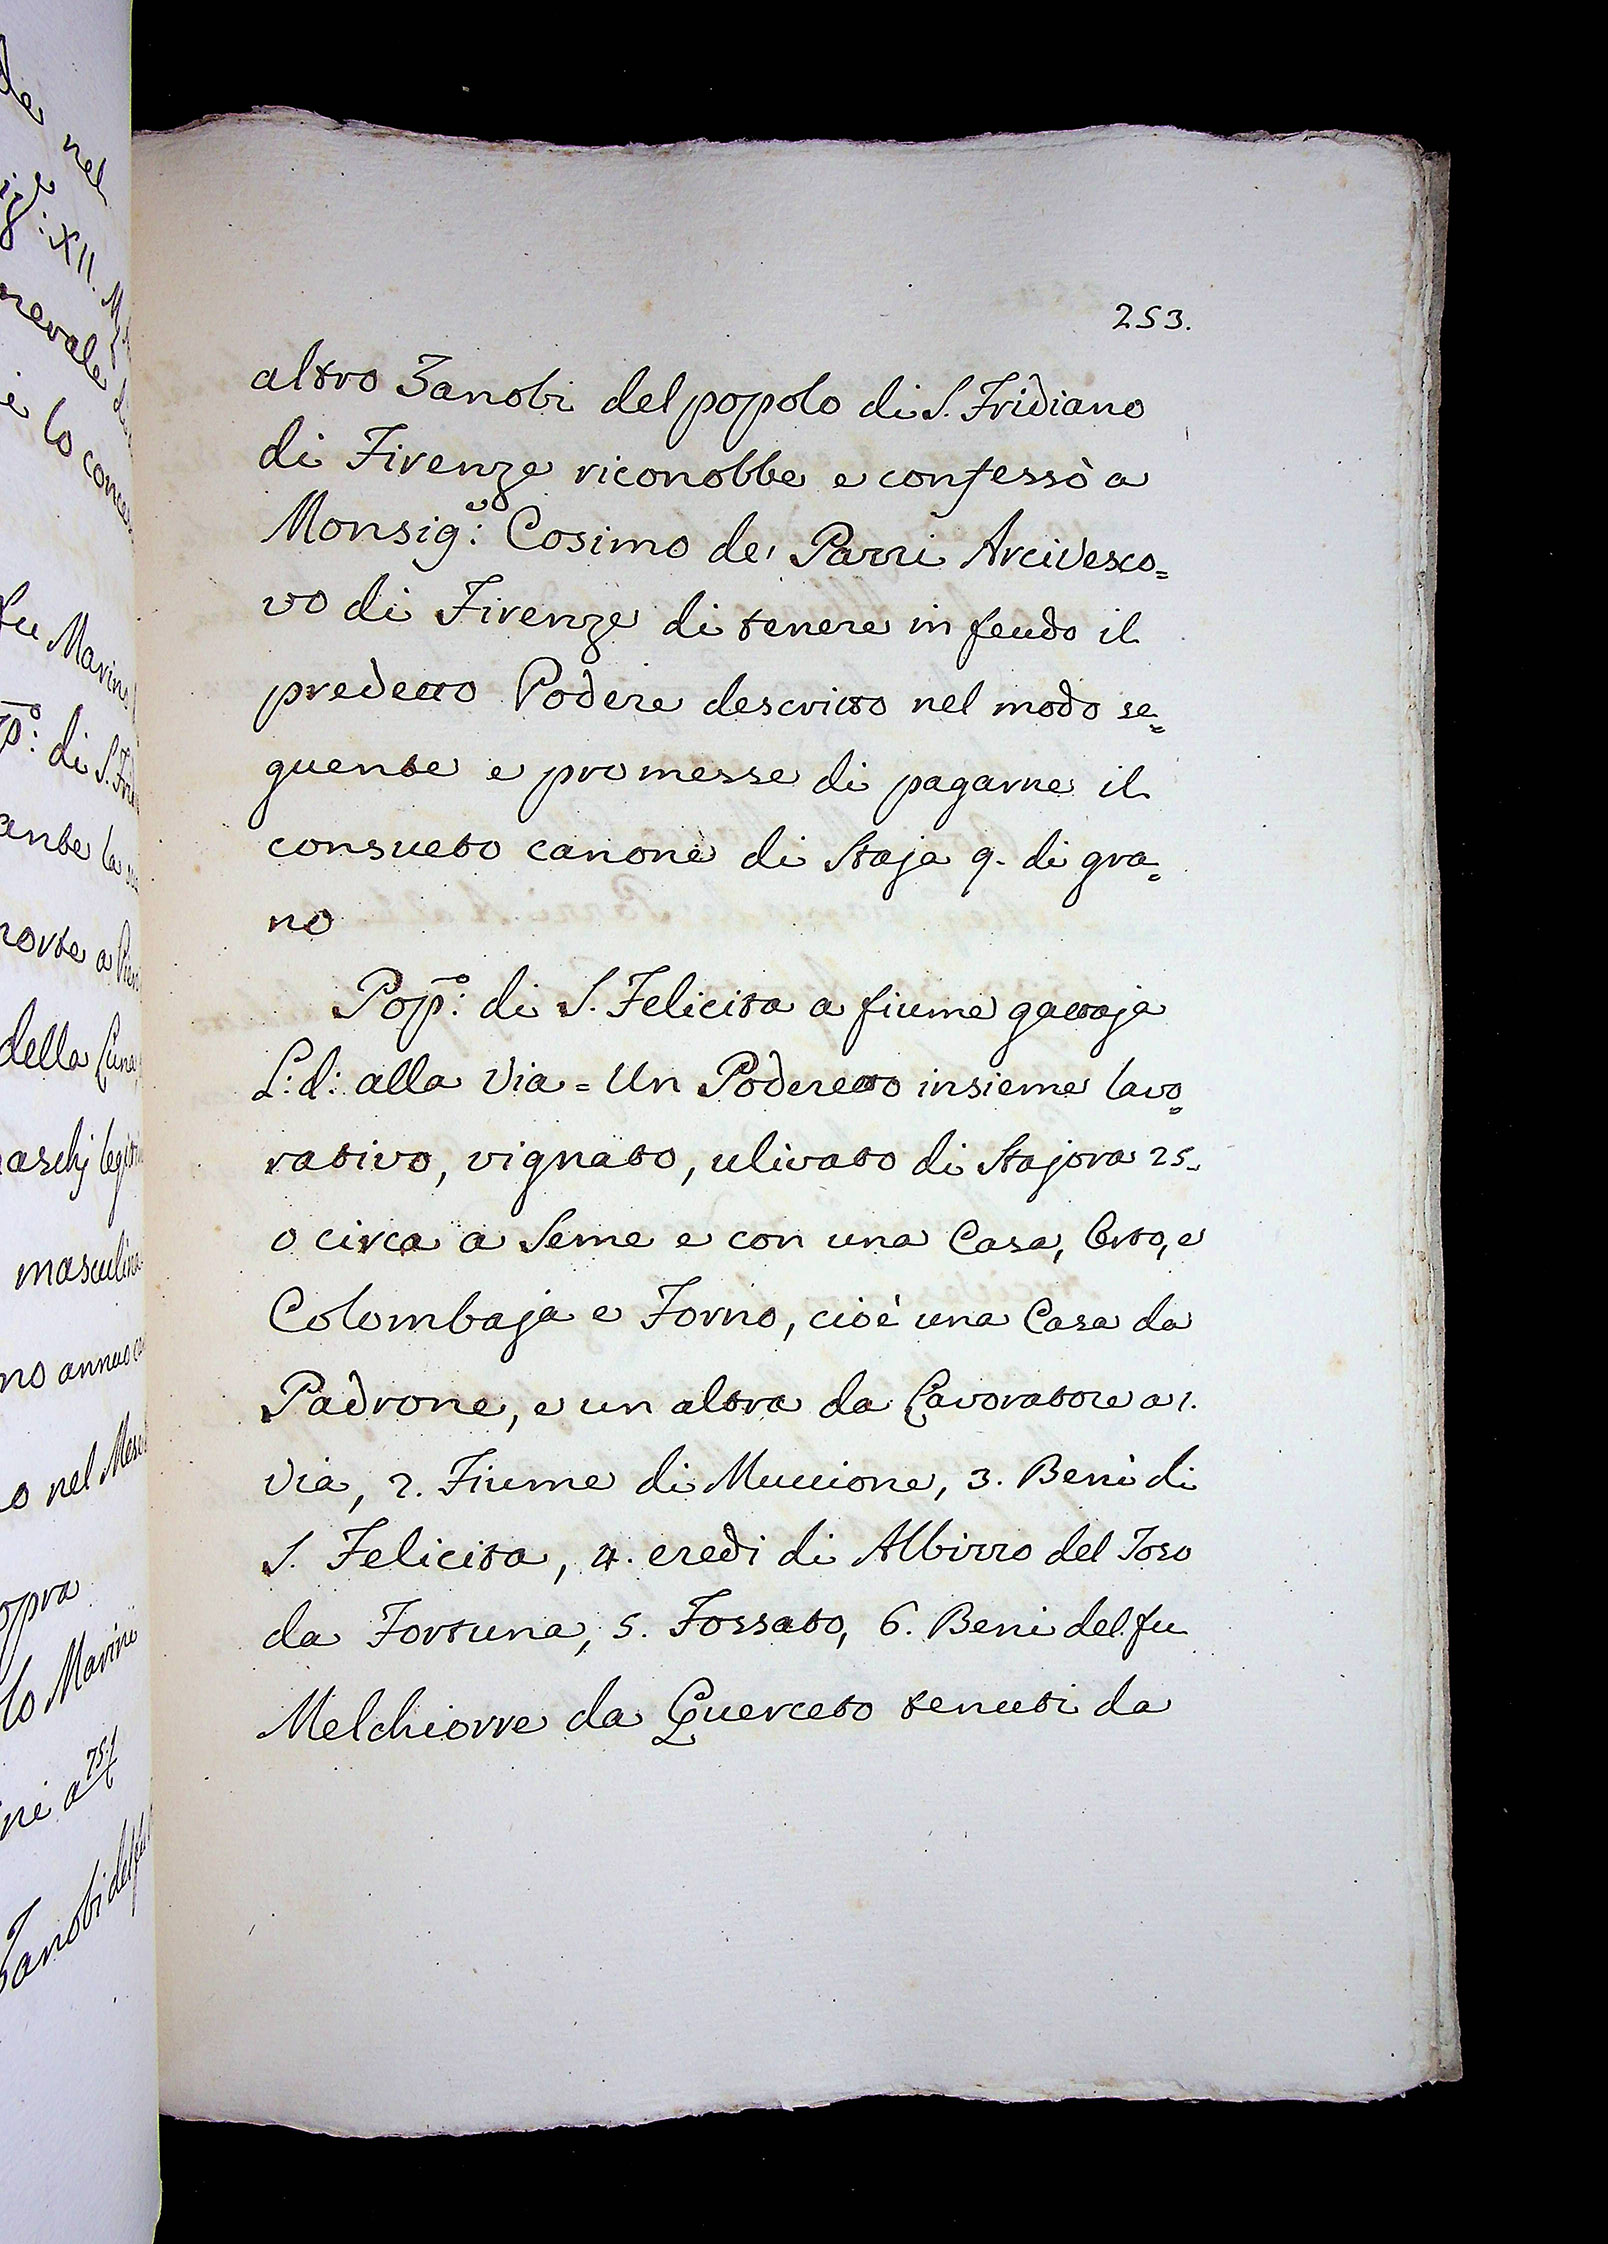 253.
altro Zanobi del popolo di S. Fridiano
di Firenze riconobbe e confessò a
Monsig.e: Cosimo de' Pazzi Arcivesco=
vo di Firenze di tenere in feudo il
predetto Podere descritto nel modo se=
guente e promesse di pagarne il
consueto canone di Staja 9. di gra=
no
Pop.o: di S. Felicita a fiume gattaja
L: d: alla Via = Un Poderetto insieme lavo=
rativo, vignato, ulivato di Stajora 25.
o circa a Seme e con una Casa, Orto, e
Colombaja e Forno, cioè una Casa da
Padrone, e un altra da Lavoratore a 1.
Via, 2. Fiume di Muccione, 3. Beni di
S. Felicita, 4. eredi di Albizzo del Toso
da Fortuna, 5. Fossato, 6. Beni del fu
Melchiorre da Querceto tenuti da
nel
XII.
lo
fu Marino
di S.
ante la
a
della Luna
masculina
no annuo
nel
sopra
lo Marini
Zanobi del fu